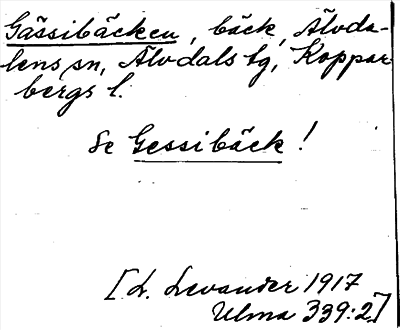 Gässibäcken, bäck, Älvda-
lens sn, Älvdals tg, Koppar
bergs l.
Se Gessibäck!
[L. Levander 1917
Ulma 339:2]